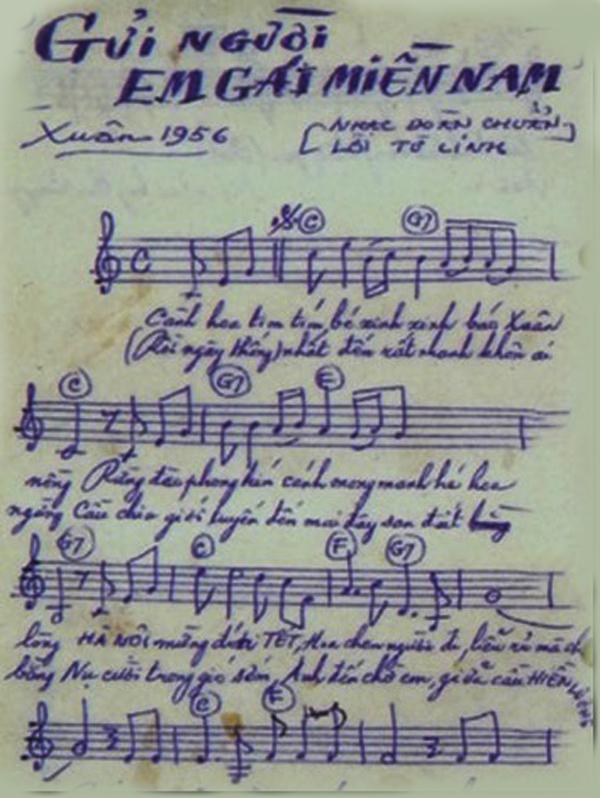 GỬI NGƯỜI
EM GÁI MIỀN NAM
Xuân 1956
[NHẠC ĐOÀN CHUẨN]
LỜI TỪ LINH
C G7
Cành hoa tim tím bé xinh xinh báo Xuân
(Rồi ngày thống) nhất đến rất nhanh không ai
C G7 E
nồng Rừng đào phong kín cánh mong manh hé hoa
ngăng Cầu chia giới tuyến đến mai đây san đất
G7 C F G7
lòng HÀ NỘI mừng đón TẾT, Hoa chen người đi, liễu rủ mà ch
bằng Nụ cười trong gió sớm, Anh đến chờ em, giữa cầu HIỀN LƯƠNG
C F